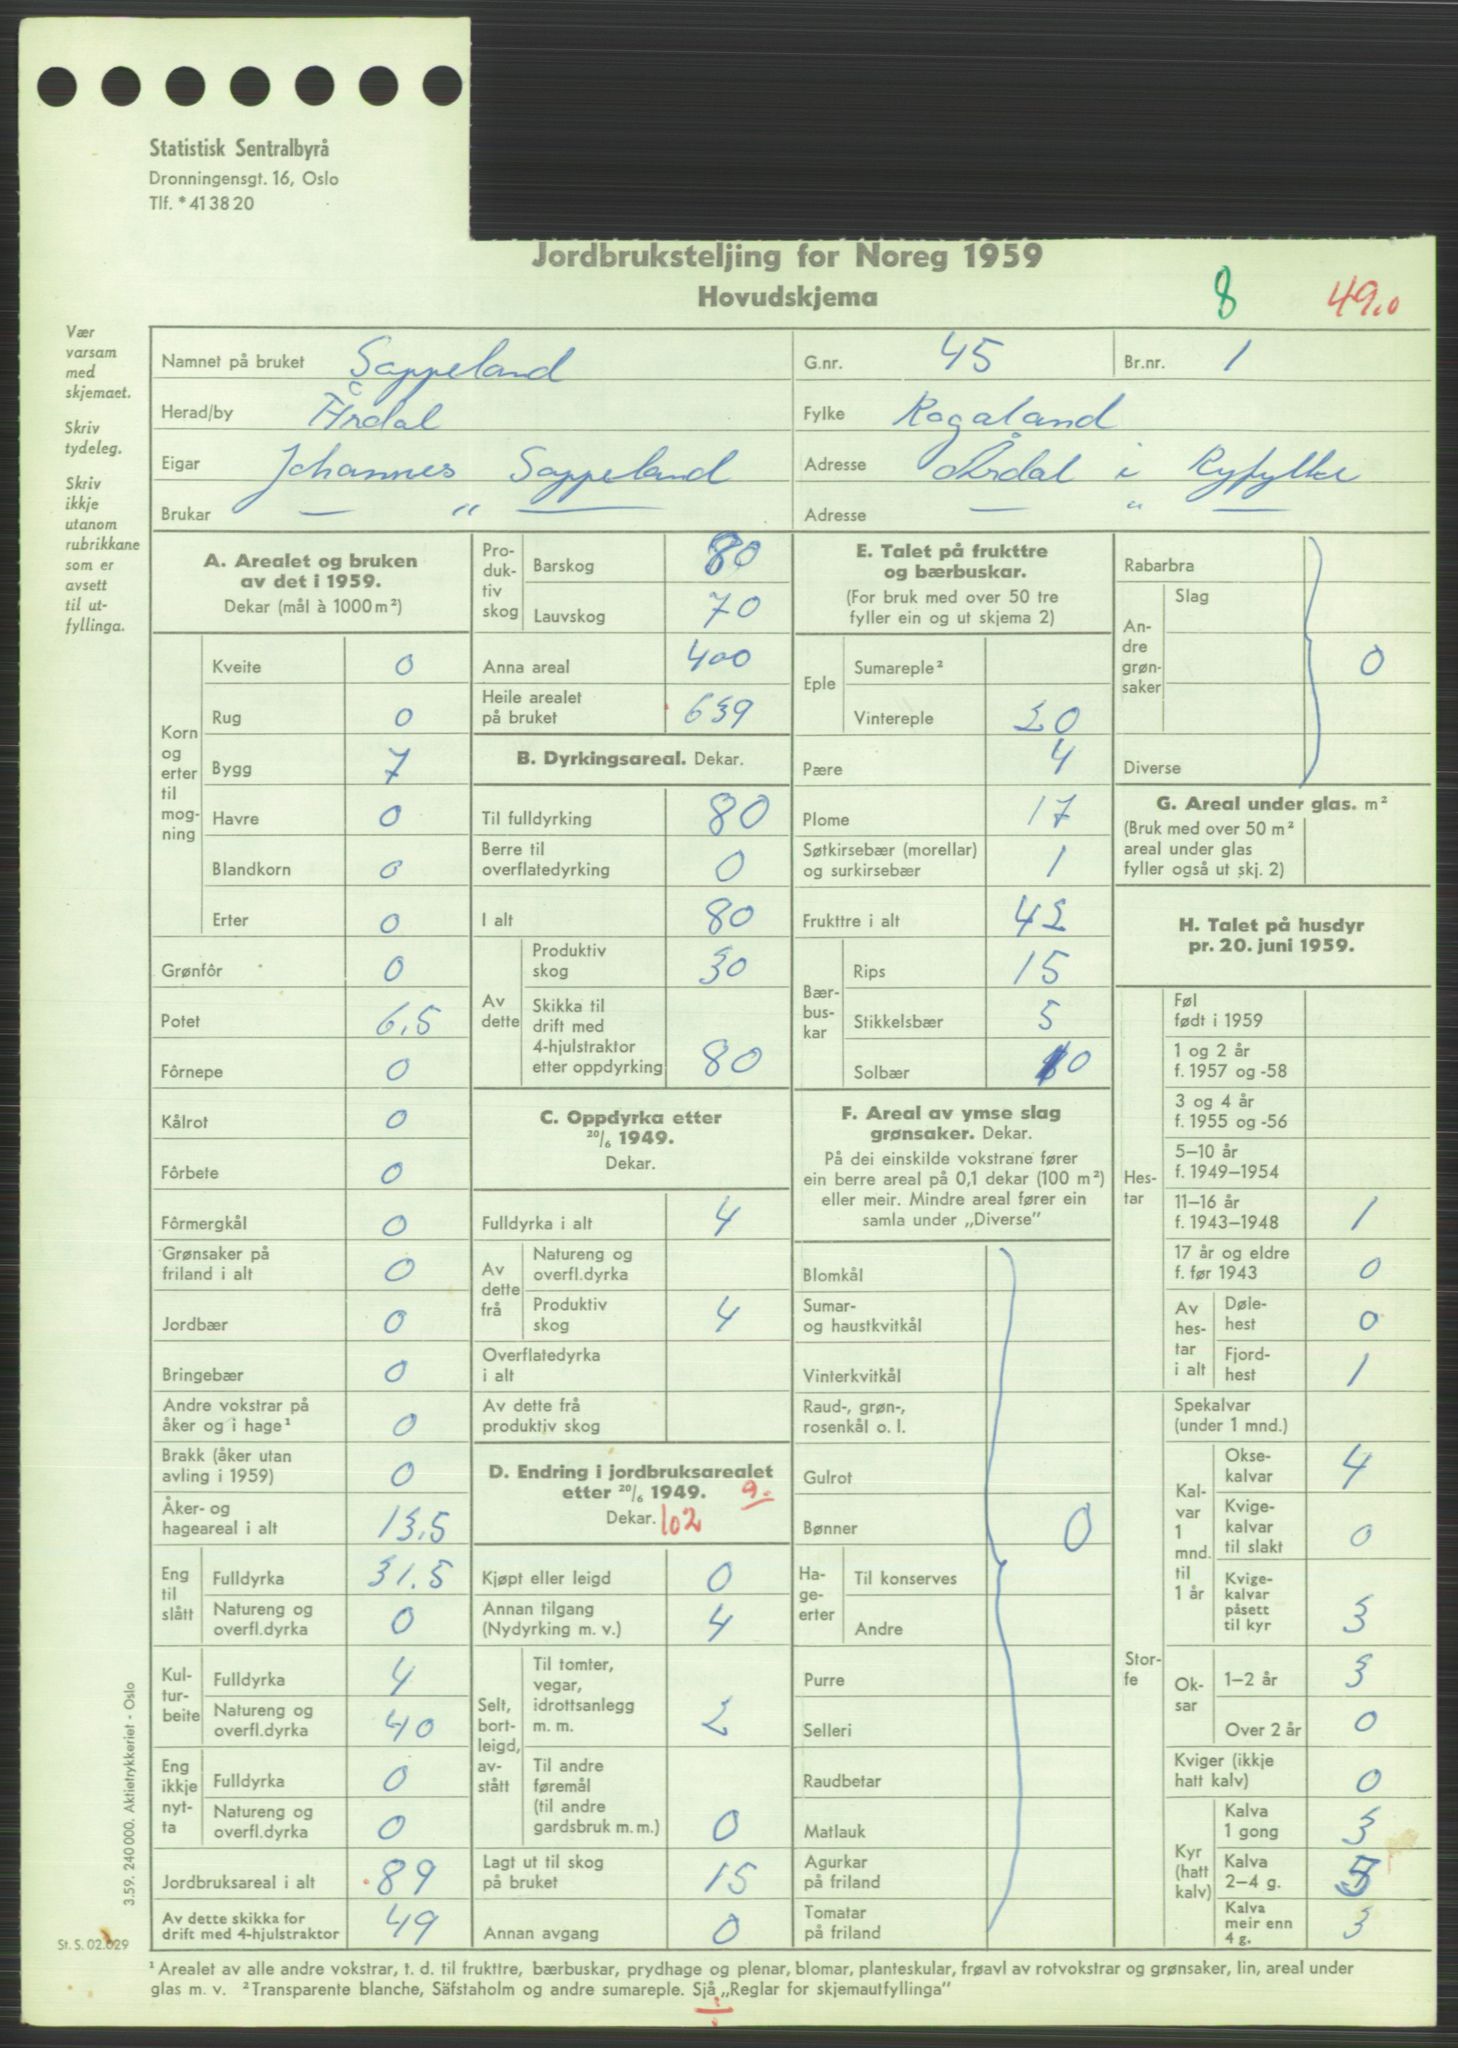 Statistisk Sentralbyrå
Dronningensgt. 16, Oslo
Tlf. * 41 38 20
Jordbruksteljing for Noreg 1959
Hovudskjema
8
49.0
Vær
varsam
med
skjemaet.
Skriv
tydeleg.
Skriv
ikkje
utanom
rubrikkane
som er
avsett
til ut-
fyllinga.
Namnet på bruket Soppeland G.nr. 45 Br.nr. 1
Herad/by Årdal Fylke Rogaland
Eigar Johannes Soppeland Adresse Årdal i Ryfylke
Brukar — „ — Adresse — „ —
A. Arealet og bruken
av det i 1959.
Dekar (mål à 1000 m²)
Korn og erter til mog-ning
Kveite 0
Rug 0
Bygg 7
Havre 0
Blandkorn 0
Erter 0
Grønfôr 0
Potet 6,5
Fôrnepe 0
Kålrot 0
Fôrbete 0
Fôrmergkål 0
Grønsaker på
friland i alt 0
Jordbær 0
Bringebær 0
Andre vokstrar på
åker og i hage¹ 0
Brakk (åker utan
avling i 1959) 0
Åker- og
hageareal i alt 13,5
Eng til slått
Fulldyrka 31.5
Natureng og
overfl.dyrka 0
Kul-tur-beite
Fulldyrka 4
Natureng og
overfl.dyrka 40
Eng ikkje nyt-ta
Fulldyrka 0
Natureng og
overfl.dyrka 0
Jordbruksareal i alt 89
Av dette skikka for
drift med 4-hjulstraktor 49
Pro-duk-tiv skog
Barskog 80
Lauvskog 70
Anna areal 400
Heile arealet
på bruket 639
B. Dyrkingsareal. Dekar.
Til fulldyrking 80
Berre til
overflatedyrking 0
I alt 80
Av dette
Produktiv
skog 30
Skikka til
drift med
4-hjulstraktor
etter oppdyrking 80
C. Oppdyrka etter
20/6 1949.
Dekar.
Fulldyrka i alt 4
Av dette frå
Natureng og
overfl.dyrka
Produktiv
skog 4
Overflatedyrka
i alt
Av dette frå
produktiv skog
D. Endring i jordbruksarealet
etter 20/6 1949. 9.
Dekar. 102
Kjøpt eller leigd 0
Annan tilgang
(Nydyrking m. v.) 4
Selt, bort-leigd, av-stått
Til tomter,
vegar,
idrottsanlegg
m. m. 2
Til andre
føremål
(til andre
gardsbruk m. m.) 0
Lagt ut til skog
på bruket 15
Annan avgang 0
E. Talet på frukttre
og bærbuskar.
(For bruk med over 50 tre
fyller ein og ut skjema 2)
Eple
Sumareple²
Vintereple 20
Pære 4
Plome 17
Søtkirsebær (morellar)
og surkirsebær 1
Frukttre i alt 42
Bær-bus-kar
Rips 15
Stikkelsbær 5
Solbær 10
F. Areal av ymse slag
grønsaker. Dekar.
På dei einskilde vokstrane fører
ein berre areal på 0,1 dekar (100 m²)
eller meir. Mindre areal fører ein
samla under „Diverse”
Blomkål
Sumar-
og haustkvitkål
Vinterkvitkål
Raud-, grøn-,
rosenkål o. l.
Gulrot
Bønner 0
Ha-ge-erter
Til konserves
Andre
Purre
Selleri
Raudbetar
Matlauk
Agurkar
på friland
Tomatar
på friland
Rabarbra
An-dre grøn-saker
Slag
0
Diverse
G. Areal under glas. m²
(Bruk med over 50 m²
areal under glas
fyller også ut skj. 2)
H. Talet på husdyr
pr. 20. juni 1959.
Hes-tar
Føl
født i 1959
1 og 2 år
f. 1957 og -58
3 og 4 år
f. 1955 og -56
5–10 år
f. 1949–1954
11–16 år
f. 1943–1948 1
17 år og eldre
f. før 1943 0
Av hes-tar i alt
Døle-
hest 0
Fjord-
hest 1
Stor-fe
Spekalvar
(under 1 mnd.)
Kal-var 1 mnd. til 1 år
Okse-
kalvar 4
Kvige-
kalvar
til slakt 0
Kvige-
kalvar
påsett
til kyr 3
Ok-sar
1–2 år 3
Over 2 år 0
Kviger (ikkje
hatt kalv) 0
Kyr (hatt kalv)
Kalva
1 gong 3
Kalva
2–4 g. 5
Kalva
meir enn
4 g. 3
3.59. 240 000. Aktietrykkeriet - Oslo
St. S. 02.029
¹ Arealet av alle andre vokstrar, t. d. til frukttre, bærbuskar, prydhage og plenar, blomar, planteskular, frøavl av rotvokstrar og grønsaker, lin, areal under
glas m. v. ² Transparente blanche, Säfstaholm og andre sumareple. Sjå „Reglar for skjemautfyllinga”